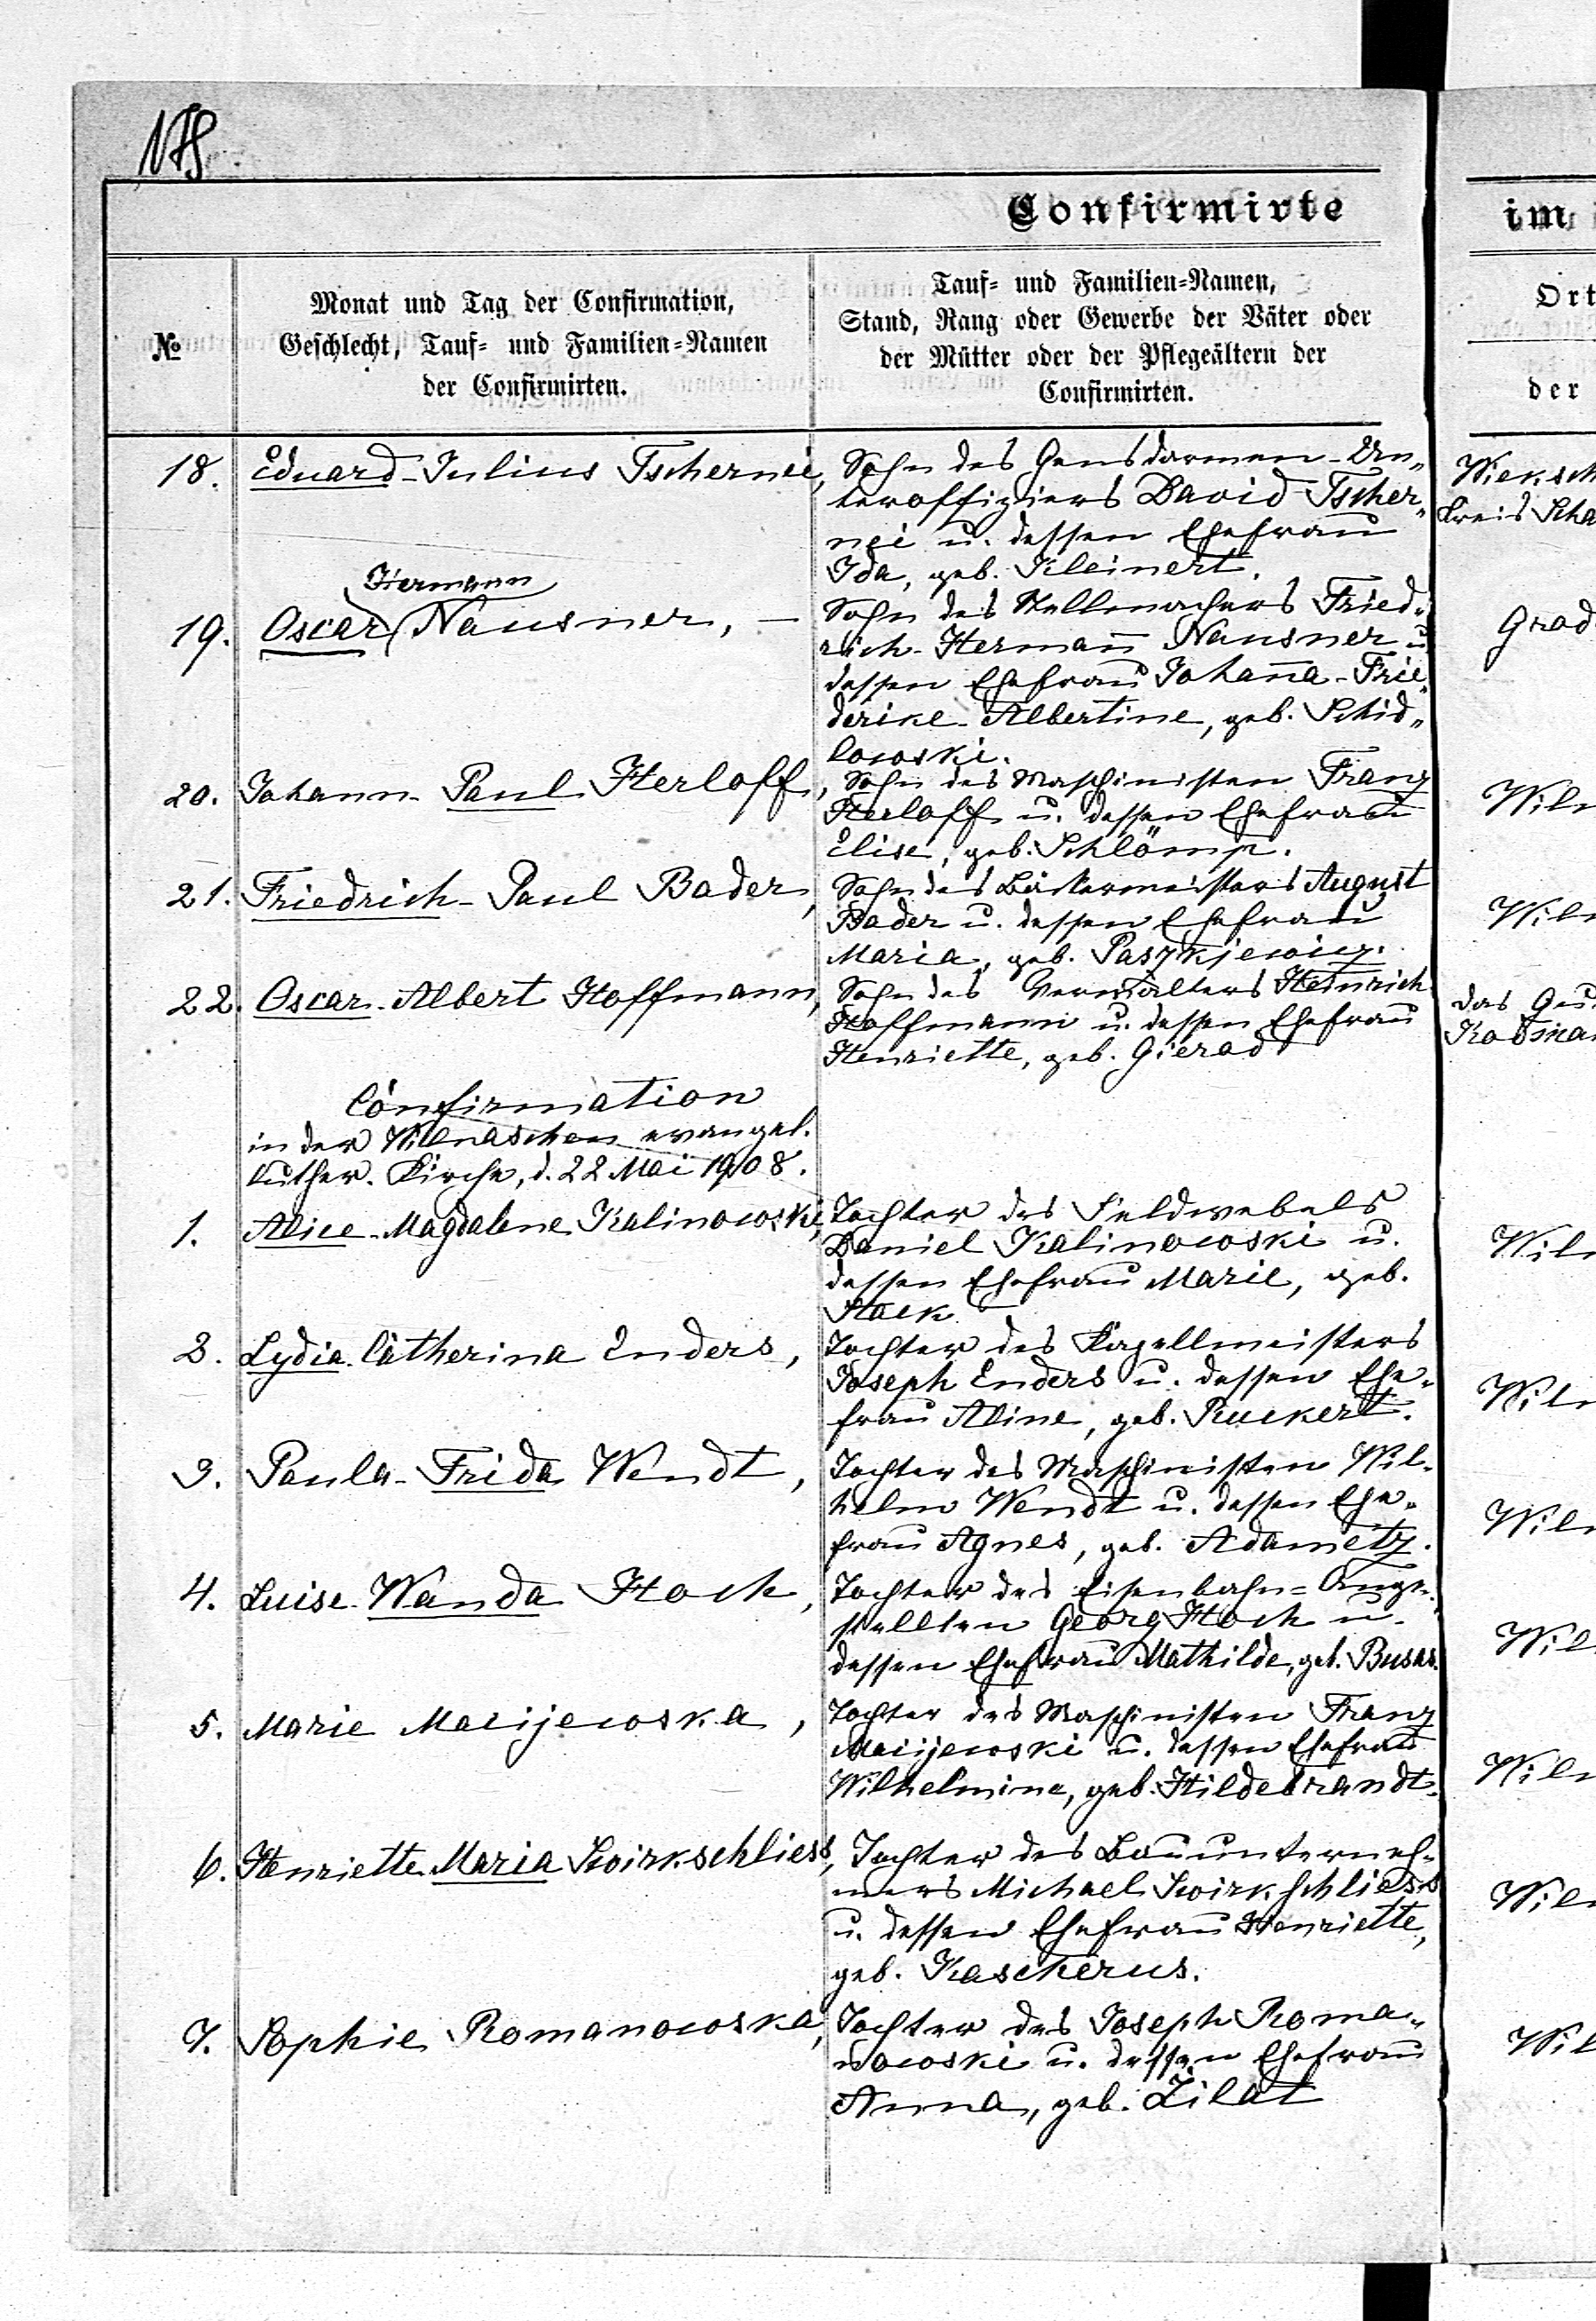 178.
Confirmirte
im
№
Monat und Tag der Confirmation,
Geschlecht, Tauf- und Familien-Namen
der Confirmirten.
Tauf- und Familien-Namen,
Stand, Rang oder Gewerbe der Väter oder
der Mütter oder der Pflegeältern der
Confirmirten.
Ort
der
18. Eduard-Julius Tschernei,
Sohn des Gensdarmen-Un„
teroffiziers David Tscher„
nei u. dessen Ehefrau
Ida, geb. Kleinert.
Kreis Scha
Hermann
19. Oscar Nausner, —
Sohn des Stellmachers Fried„
rich-Hermann̅ Nausner u.
dessen Ehefrau Johan̅a-Frie„
derike-Albertine, geb. Schid„
lowski.
Grad
20. Johann-Paul Herloff,
Sohn des Maschinisten Franz
Herloff u. dessen Ehefrau
Elise, geb. Schlömp.
Wiln
21. Friedrich-Paul Bader,
Sohn des Bäckermeisters August
Bader u. dessen Ehefrau
Maria, geb. Paszkjewicz.
Wiln
22. Oscar-Albert Hoffmann,
Sohn des Verwalters Heinrich
Hoffmann u. dessen Ehefrau
Henriette, geb. Gierad
das Gu
Confirmation
in der Wilnaschen evangel.
luther. Kirche, d. 22 Mai 1908.
1. Alice-Magdalene Kalinowski,
Tochter des Feldwebels
Daniel Kalinowski u.
dessen Ehefrau Marie, geb.
Wiln
2. Lydia Catherina Enders,
Tochter des Kapellmeisters
Joseph Enders u. dessen Ehe-
frau Aline, geb. Ruckert.
Wiln
3. Paula-Frida Wendt,
Tochter des Maschinisten Wil-
helm Wendt u. dessen Ehe-
frau Agnes, geb. Adametz.
Wiln
4. Luise-Wanda Hoch,
Tochter des Eisenbahn-Ange-
stellten Georg Hoch u.
dessen Ehefrau Mathilde, geb.
Wil
5. Marie Macijewska,
Tochter des Maschinisten Franz
Macijewski u. dessen Ehefrau
Wilhelmine, geb. Hildebrandt.
Wiln
6. Henriette Maria Swirkschliess,
Tochter des Bauunterneh-
mers Michael Swirkschliess
u. dessen Ehefrau Henriette,
geb. Kascherus.
Wiln
7. Sophie Romanowska,
Tochter des Joseph Roma-
nowski u. dessen Ehefrau
Anna, geb. Žilat
Wil